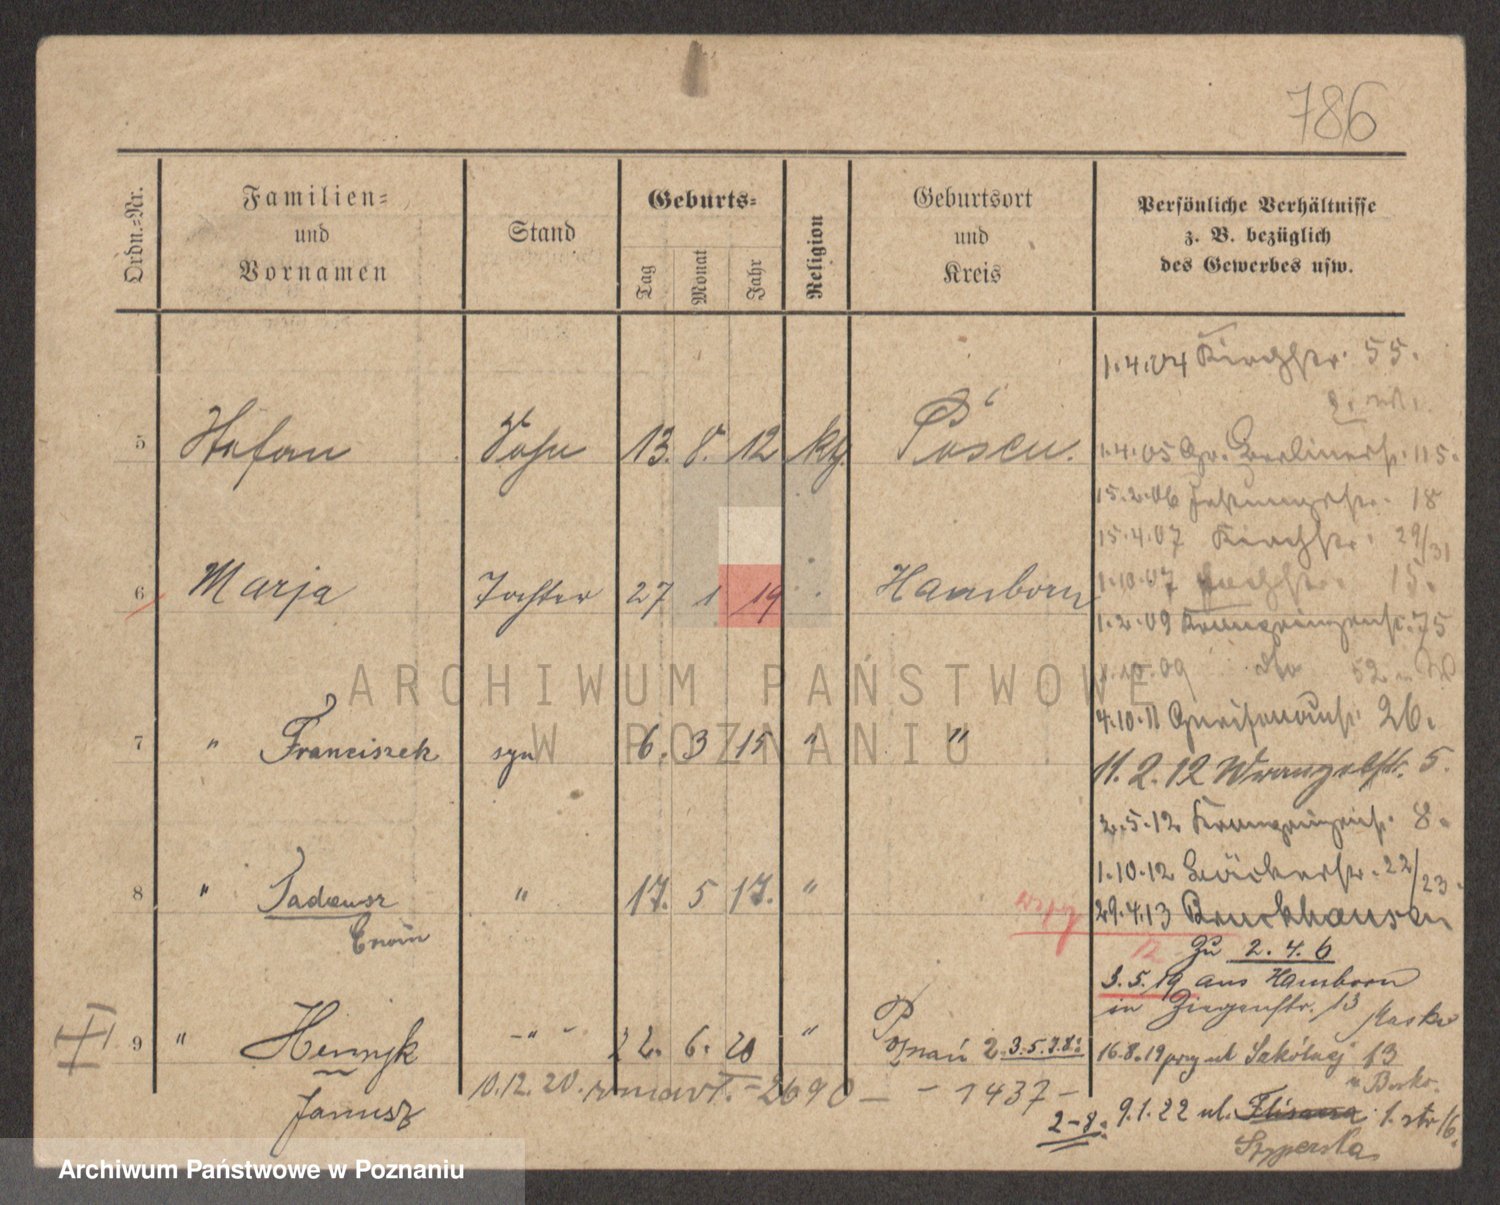 786
Ordn.=Nr.
Familien=
und
Vornamen
Stand
Geburts=
Tag
Monat
Jahr
Religion
Geburtsort
und
Kreis
Persönliche Verhältnisse
z. B. bezüglich
des Gewerbes usw.
1.4.04 Kirchstr. 55.
5 Stefan Sohn 13. 8. 12 kth. Posen.
1.4.05 Gr. Berlinerstr. 115.
15.2.06 18
15.4.07 Kirchstr. 29/31
6 Marja Tochter 27 1 19 Hamborn
1.10.07 15.
1.2.09 Kronprinzenstr. 75
1.10.09 dto 52
4.10.11 Gneisenaustr. 26.
7 " Franciszek syn 6. 3 15 " "
11.2.12 Wrangelstr. 5.
2.5.12 Kronprinzenstr. 8.
8 " Tadeusz " 17. 5 17. "
Erwin
1.10.12 Bäckerstr. 22/23.
29.4.13 Bruckhausen
zu 2. 4. 6
3.5.19 aus Hamborn
in Ziegenstr. 13
9 " Henryk -"- 22. 6. 20 " Poznań 2.3.5.7.8:
Janusz
16.8.19 przy ul 13
10.12.20. 2690 — - 1437 -
2-8. 9.1.22 ul. 1. str 16.
ARCHIWUM PAŃSTWOWE
W POZNANIU
Archiwum Państwowe w Poznaniu